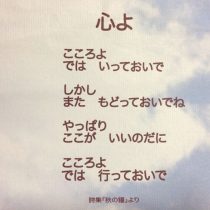 心よ
こころよ
では　いっておいで
しかし
また　もどっておいでね
やっぱり
ここが　いいのだに
こころよ
では　行っておいで
詩集「秋の瞳」より